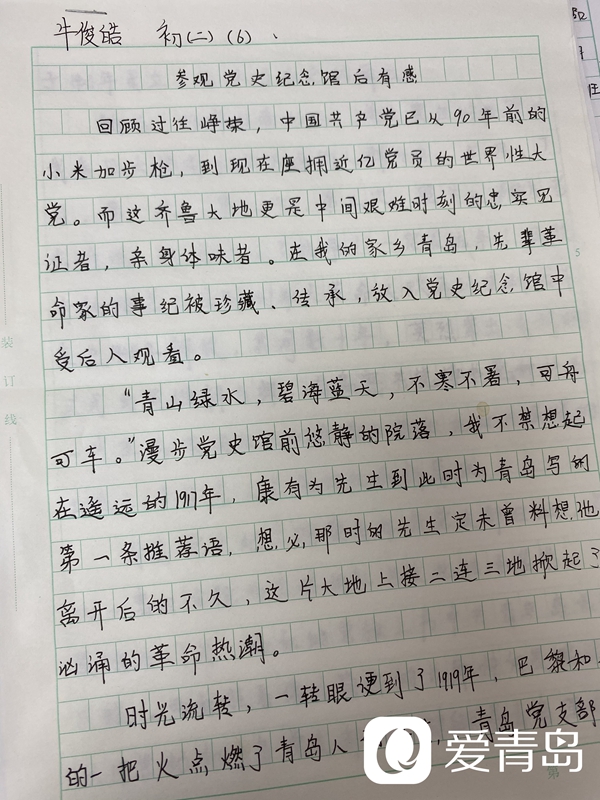 牛俊皓 初(二)(6)、
参观党史纪念馆后有感
回顾过往峥嵘，中国共产党已从90年前的
小米加步枪，到现在座拥近亿党员的世界性大
党。而这齐鲁大地更是中间艰难时刻的忠实见
证者，亲身体味者。在我的家乡青岛，先辈革
命家的事纪被珍藏、传承，放入党史纪念馆中
受后人观看。
“青山绿水，碧海蓝天，不寒不暑，可舟
可车。”漫步党史馆前悠静的院落，我不禁想起
在遥远的1917年，康有为先生到此时为青岛写的
第一条推荐语，想必那时的先生定未曾料想他
离开后的不久，这片大地上接二连三地掀起了
汹涌的革命热潮。
时光流转，一转眼便到了1919年，巴黎和
的一把火点燃了青岛人 青岛党支部
爱青岛
装
订
线
5
第